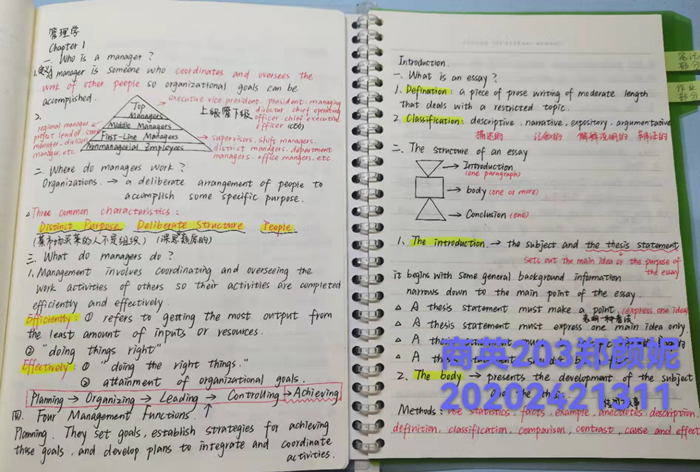 管理学
Chapter 1
一. Who is a manager?
1. manager is someone who coordinates and oversees the
work of other people so organizational goals can be
accomplished.
executive vice president, president, managing
director, chief operating
officer, chief executive
officer (CEO)
上级管下级
2.
Top
Managers
Middle Managers
First-Line Managers
Nonmanagerial Employees
regional manager
project leader
manager, division
manager, etc
supervisors, shift managers,
district managers, department
managers, office managers, etc
二. Where do managers work?
Organizations → a deliberate arrangement of people to
accomplish some specific purpose.
Three common characteristics:
Distinct Purpose Deliberate Structure People
三. What do managers do?
1. Management involves coordinating and overseeing the
work activities of others so their activities are completed
efficiently and effectively.
Efficiently: ① refers to getting the most output from
the least amount of inputs or resources.
② "doing things right"
Effectively: ① "doing the right things."
② attainment of organizational goals.
Planning → Organizing → Leading → Controlling → Achieving
四. Four Management Functions. ↑
Planning. They set goals, establish strategies for achieving
those goals, and develop plans to integrate and coordinate
activities.
Introduction.
一. What is an essay?
1. Defination: a piece of prose writing of moderate length
that deals with a restricted topic.
2. Classification: descriptive, narrative, expository, argumentative
描述的
二. The structure of an essay
Introduction
(one paragraph)
body (one or more)
Conclusion (one)
1. The introduction. → the subject and the thesis statement
sets out the main idea or the purpose of
the essay
it begins with some general background information
narrows down to the main point of the essay
△ A thesis statement must make a point. (express one idea)
△ A thesis statement must express one main idea only
△ A
△ A
2. The body → presents the development of the subject
Methods: use statistics, facts, example, anecdotes, description,
definition, classification, comparison, contrast, cause and effect
商英203郑颜妮
20202421311